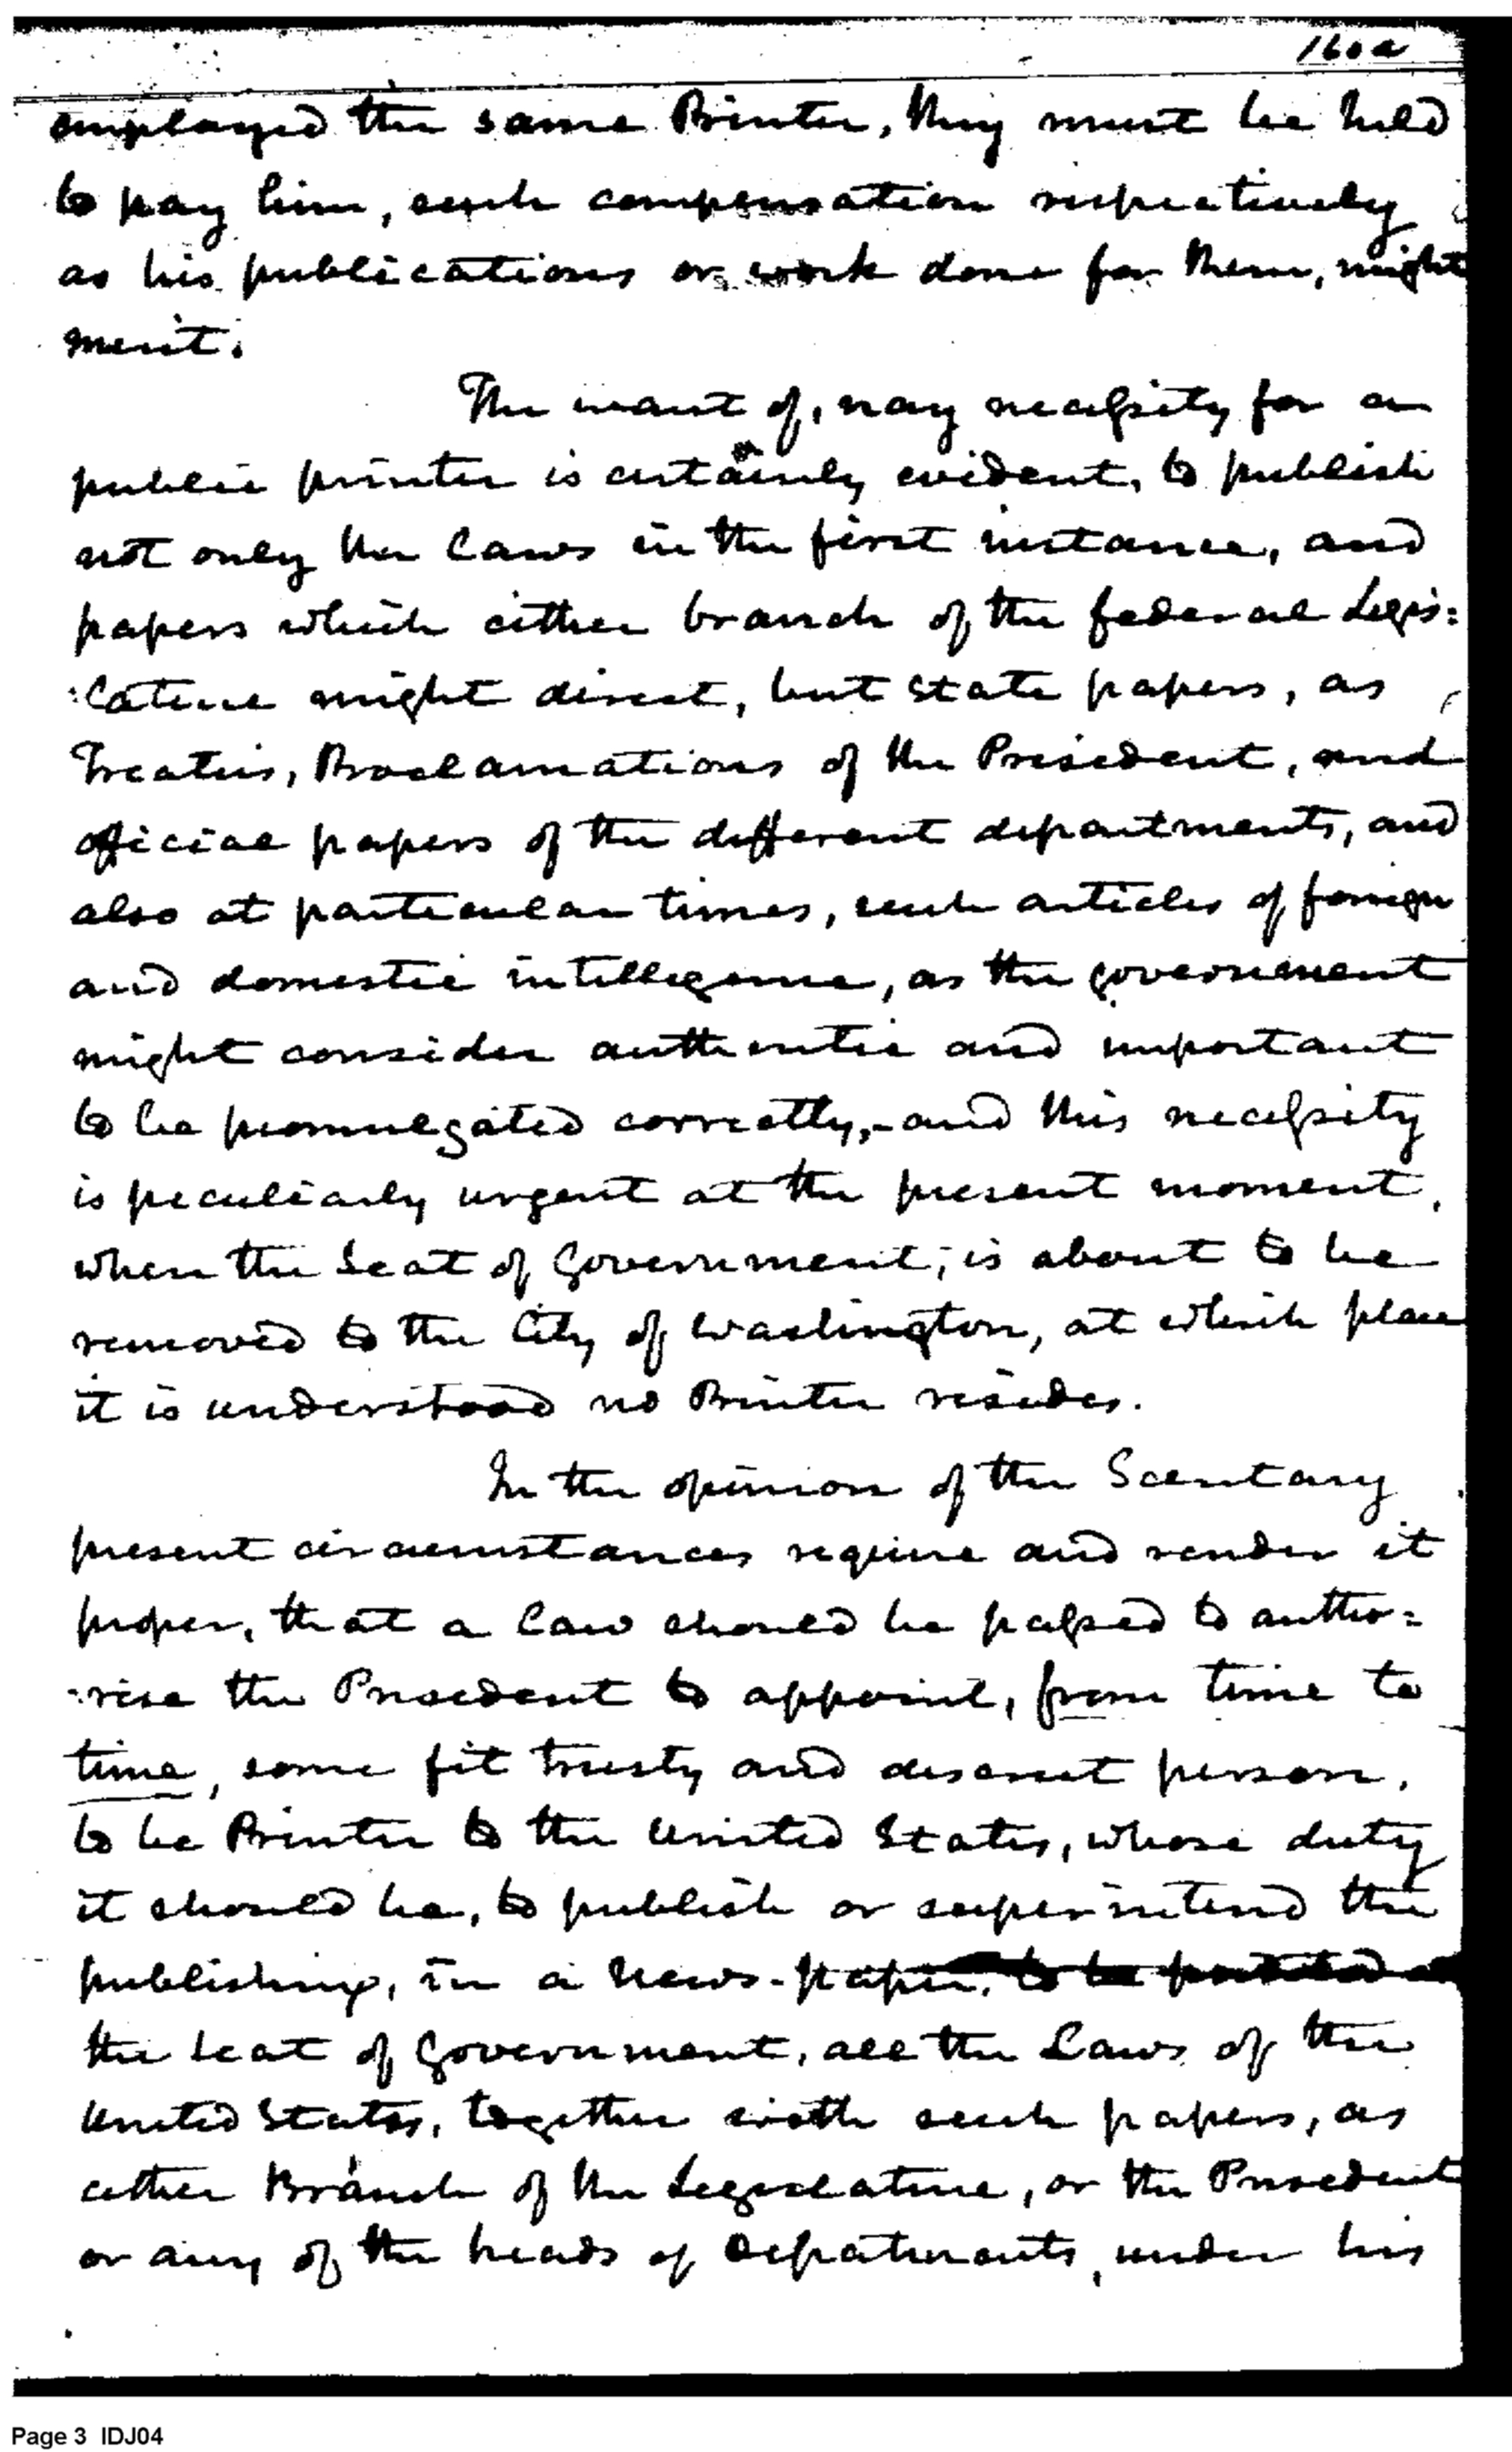 160a
employed the same Printer, they must be held
to pay him, such compensation respectively
as his publications or work done for them, might
merit.
The want of, nay necessity for a
public printer is certainly evident, to publish
not only the Laws in the first instance, and
papers which either branch of the federal Legis:
:lature might direct, but state papers, as
Treaties, Proclamations of the President, and
official papers of the different departments, and
also at particular times, such articles of foreign
and domestic intelligence, as the government
might consider authentic and important
to be promulgated correctly,- and this necessity
is peculiarly urgent at the present moment,
when the Seat of Government, is about to be
removed to the City of Washington, at which place
it is understood no Printer resides.
In the opinion of the Secretary
present circumstances require and render it
proper, that a Law should be passed to autho=
:rise the President to appoint, from time to
time, some fit trusty and discreet person,
to be Printer to the United States, whose duty
it should be, to publish or superintend the
publishing, in a News-paper, to be printed at
the Seat of Government, all the Laws of the
United States, together with such papers, as
either Branch of the Legislature, or the President
or any of the heads of Departments, under his
Page 3 IDJ04